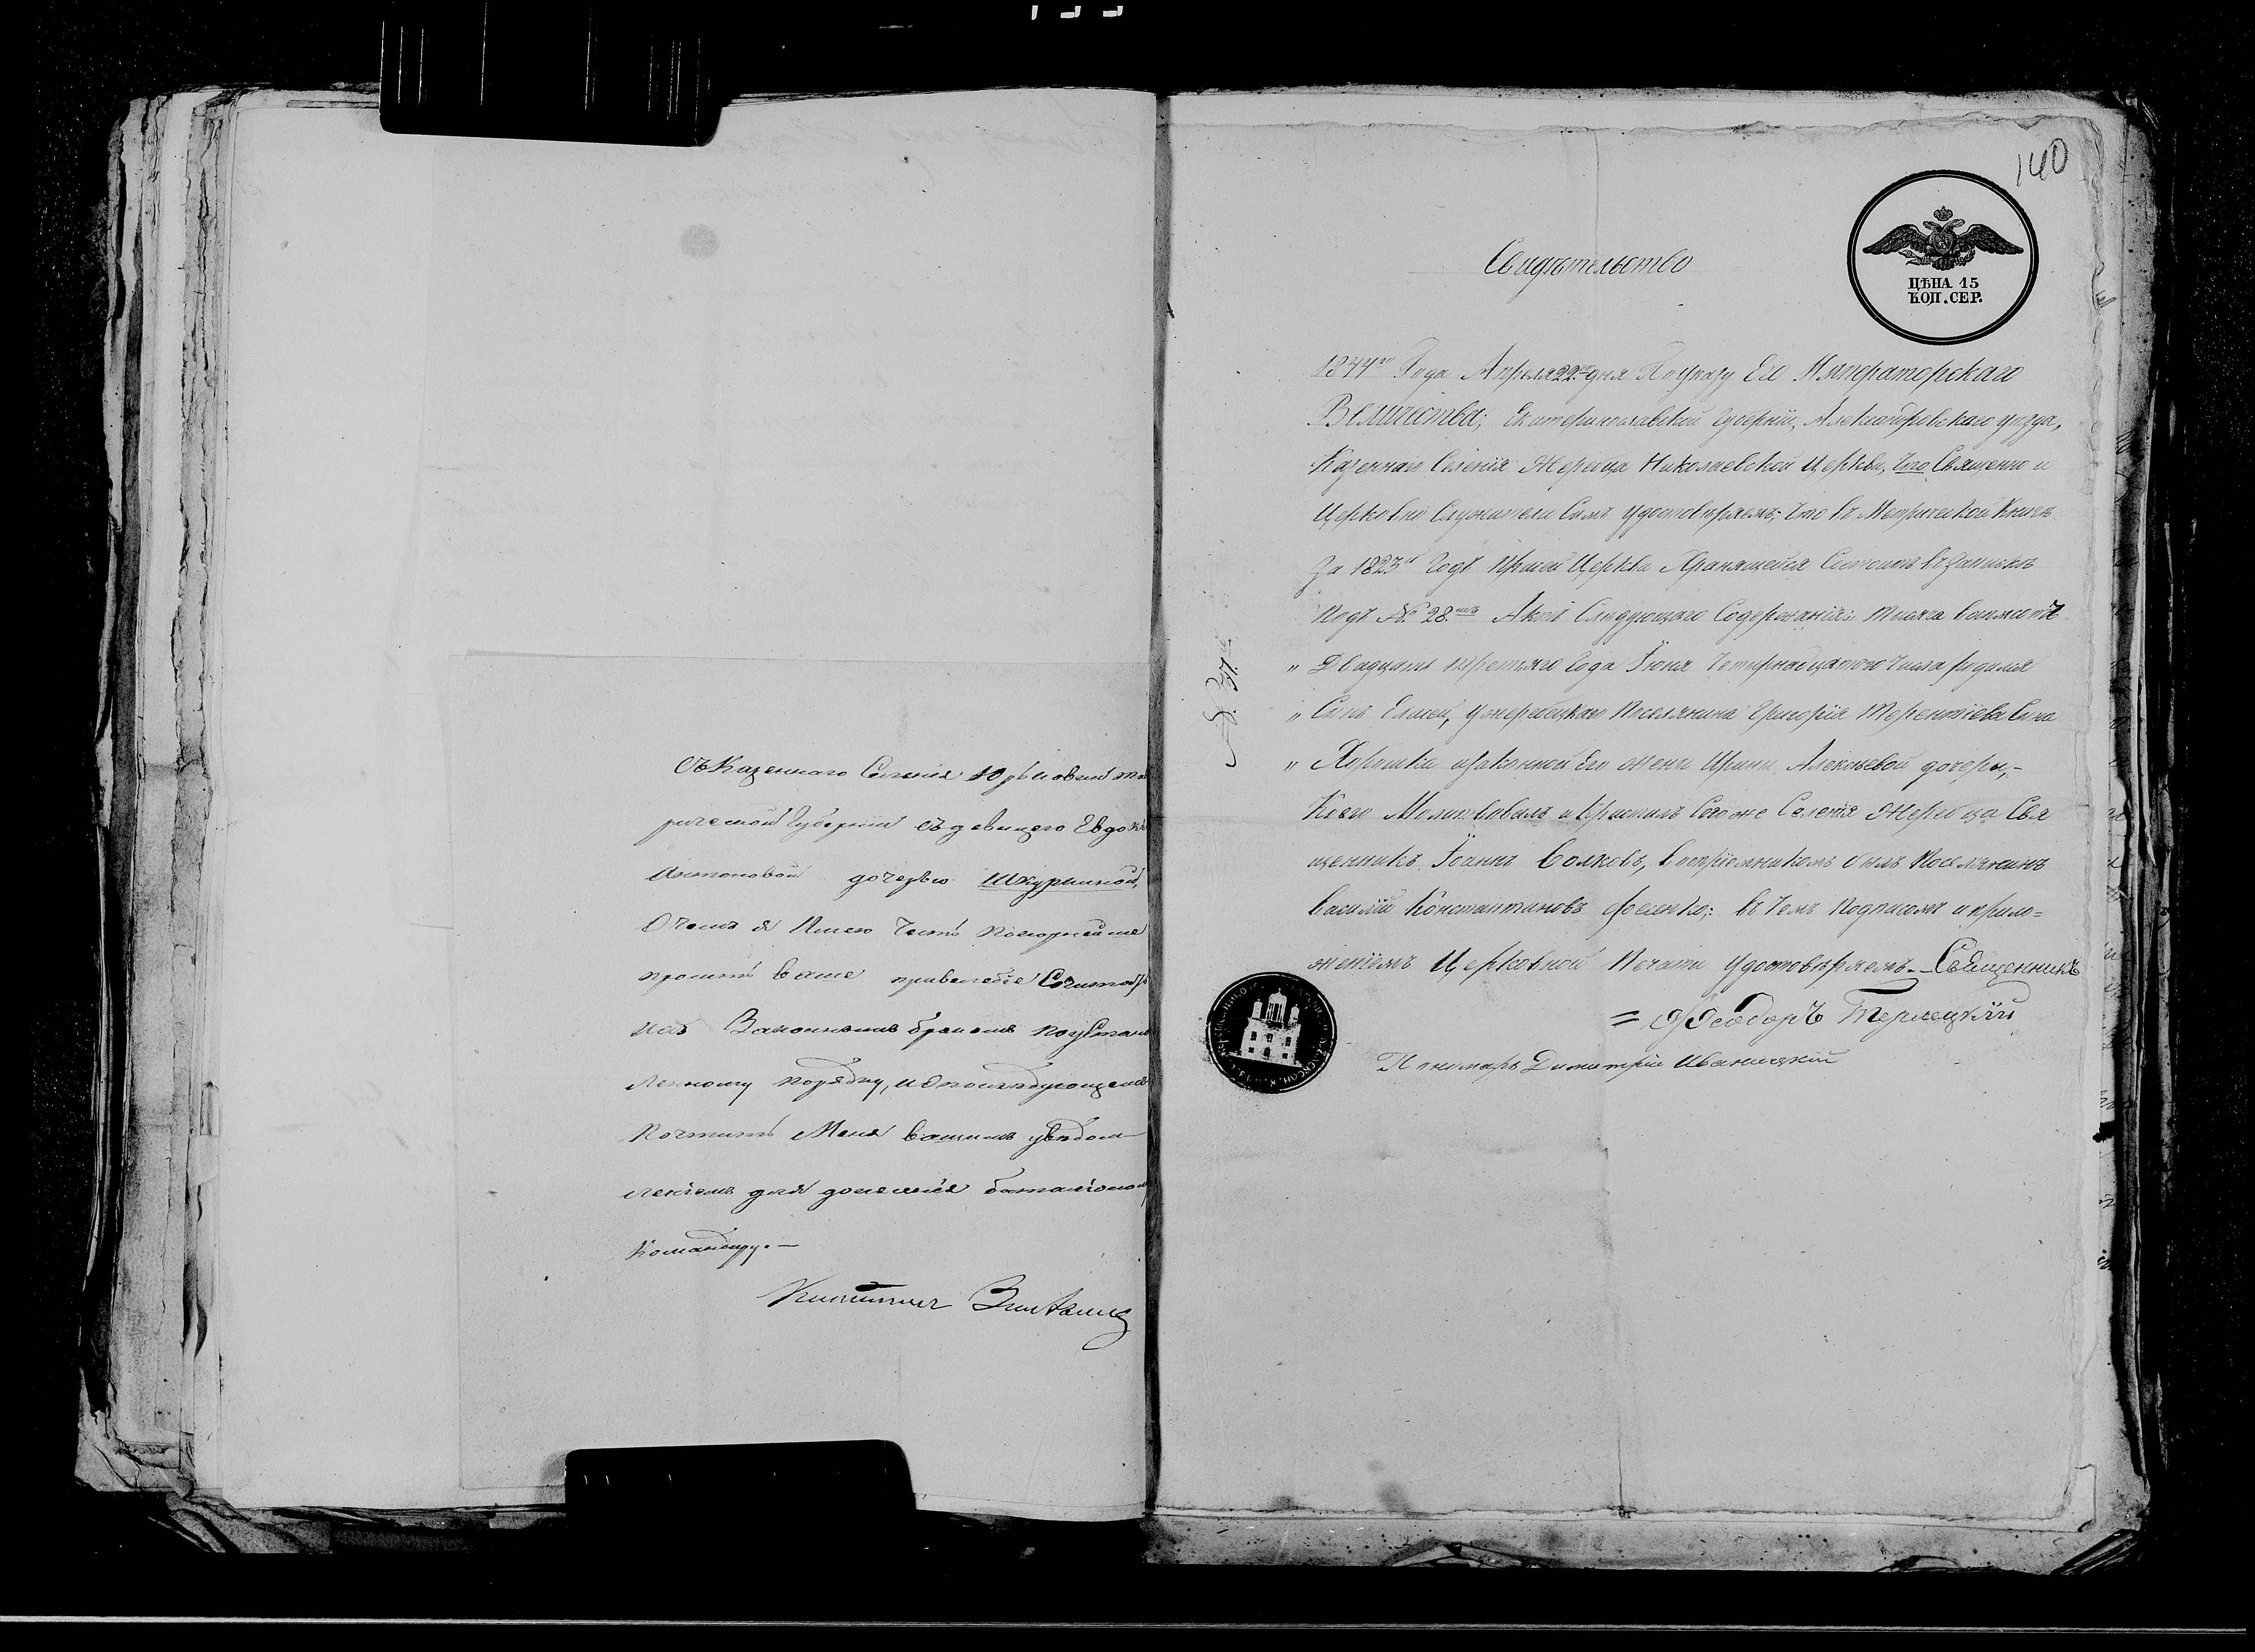 Съ Казеннаго Селенія Юрьовки та
рической Губерніи съ девицею Евдокі
Антоновой дочерью Шкуриной,
О чемъ я Имею Честь покорнейше
просить ваше привелебіе Сочитать
ихъ Законнымъ бракомъ поустанов
ленному порядку, и опоследующемъ
Почтить Меня вашимъ уведом-
леніемъ для донесенія баталіоном
Командиру. —
140
ЦѢНА 15
КОП. СЕР.
Свидѣтельство
1844го Года Апреля 22го дня Поуказу Его Императорскаго
Величества; Екатеринославской Губерніи, Александровскаго уѣзда,
Казеннаго Селенія Жеребца Николаевской Церкви, Священно и
Церковно Служители Симъ Удостовѣряемъ; что въ Метрической Книгѣ
За 1823й Годъ при сей Церкви Хранящейся Состоитъ въ запискѣ
подъ №. 28.мъ Актъ Слѣдующаго Содержанія: тысяча восьмсотъ
„ Двадцать третьяго Года Іюня Четырнадцатого Числа родился
„ Сынъ Елисей, ужеребецкаго Поселянина Григорія Терентіева Сына
„ Хорошка изаконной Его жены Ирины Алексѣевой дочеры,-
Коего Молитвовалъ и Крестилъ Того же Селенія Жеребца Свя
щенникъ Іоаннъ Волковъ, воспріемникомъ былъ Поселянинъ
Василій Константиновъ Фесенко;: въ чемъ подписомъ и прило=
женіемъ Церковной Печати Удостовѣряемъ. - Священникъ
= Феодоръ Терлецкій
Пономарь Димитрій Иваницкій